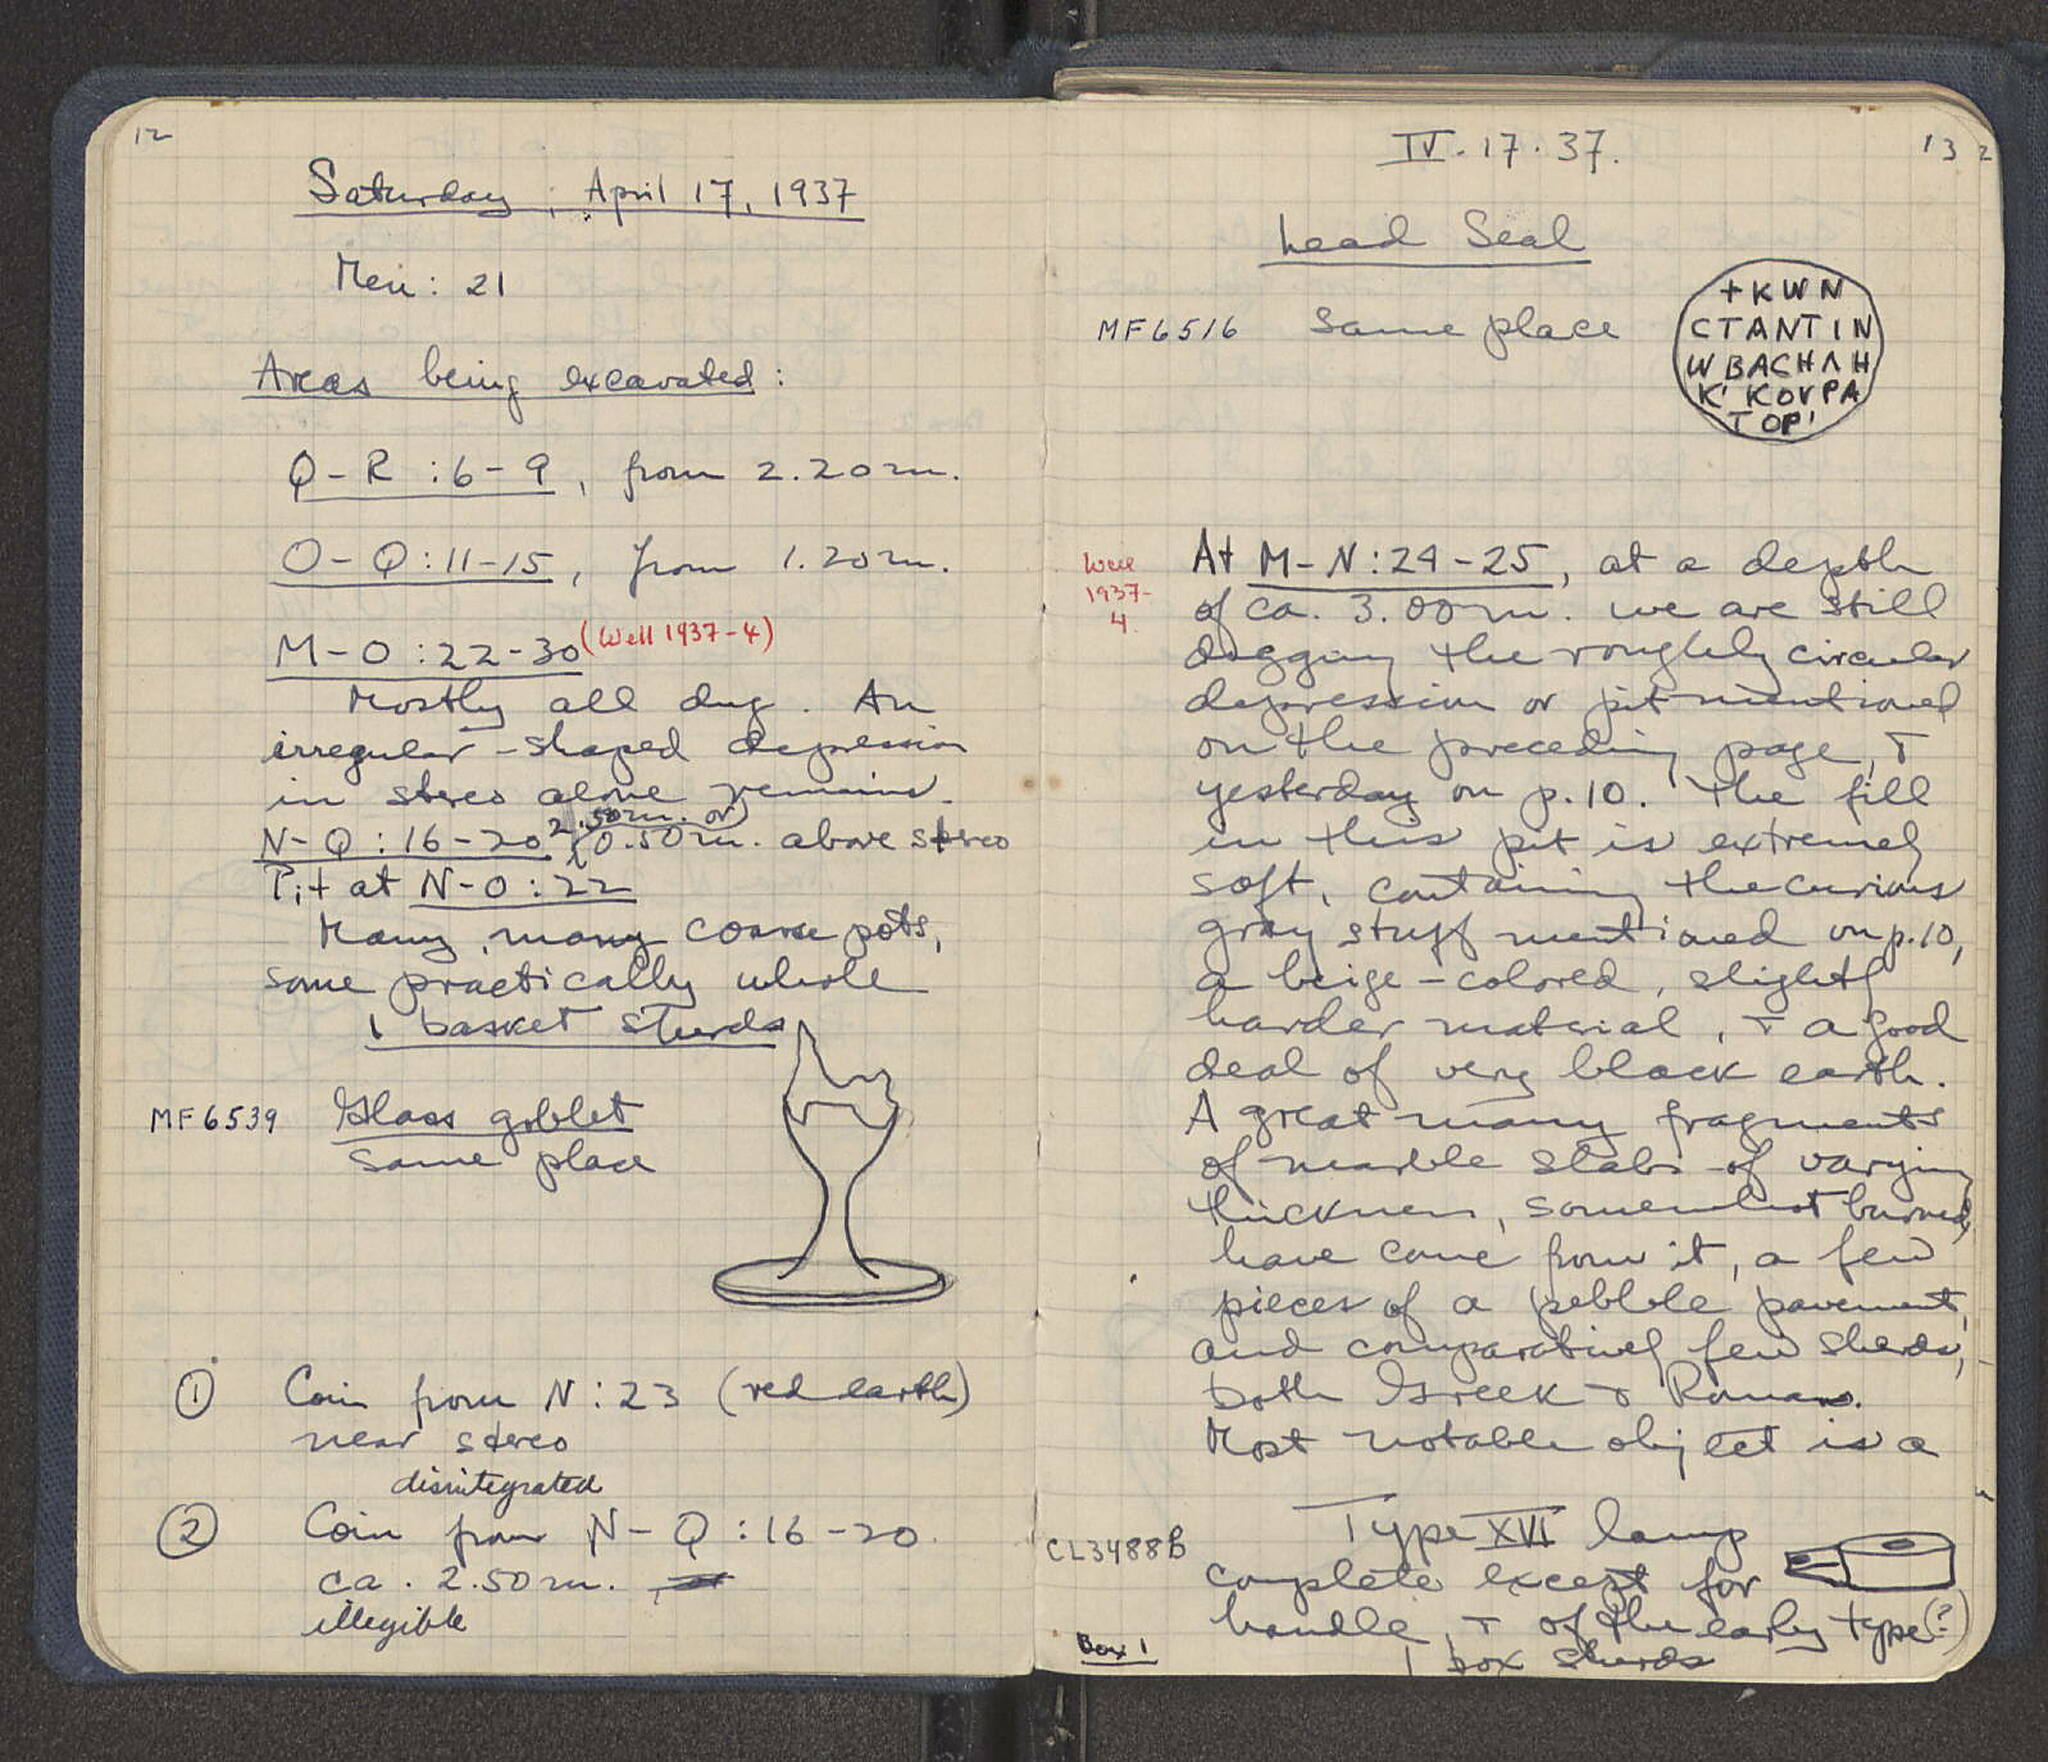 12
Saturday, April 17, 1937
Men: 21
Areas being excavated:
Q-R:6-9, from 2.20m.
O-Q:11-15, from 1.20m.
M-O:22-30 (Well 1937-4)
Mostly all dug. An
irregular-shaped depression
in stereo alone remains.
2.50m. or
N-Q:16-20 0.50m. above stereo
Pit at N-O:22
Many, many coarse pots,
some practically whole
1 basket sherds
MF6539 Glass goblet
same place
① Coin from N:23 (red earth)
near stereo
disintegrated
② Coin from N-Q:16-20.
ca. 2.50m.
illegible
IV.17.37.
13
2
Lead Seal
MF6516 same place
+KWN
CTANTIN
WBACHΛH
K' KOVPA
TOP'
Well
1937-
4.
At M-N:24-25, at a depth
of ca. 3.00m. we are still
digging the roughly circular
depression or pit mentioned
on the preceding page, +
yesterday on p.10. The fill
in this pit is extremely
soft, containing the curious
gray stuff mentioned on p.10,
a beige-colored, slightly
harder material, + a good
deal of very black earth.
A great many fragments
of marble slabs of varying
thickness, somewhat burned,
have come from it, a few
pieces of a pebble pavement,
and comparatively few sherds,
both Greek + Roman.
Most notable object is a
Type XVI lamp
CL3488B complete except for
handle, + of the early type(?)
Box 1
1 box sherds